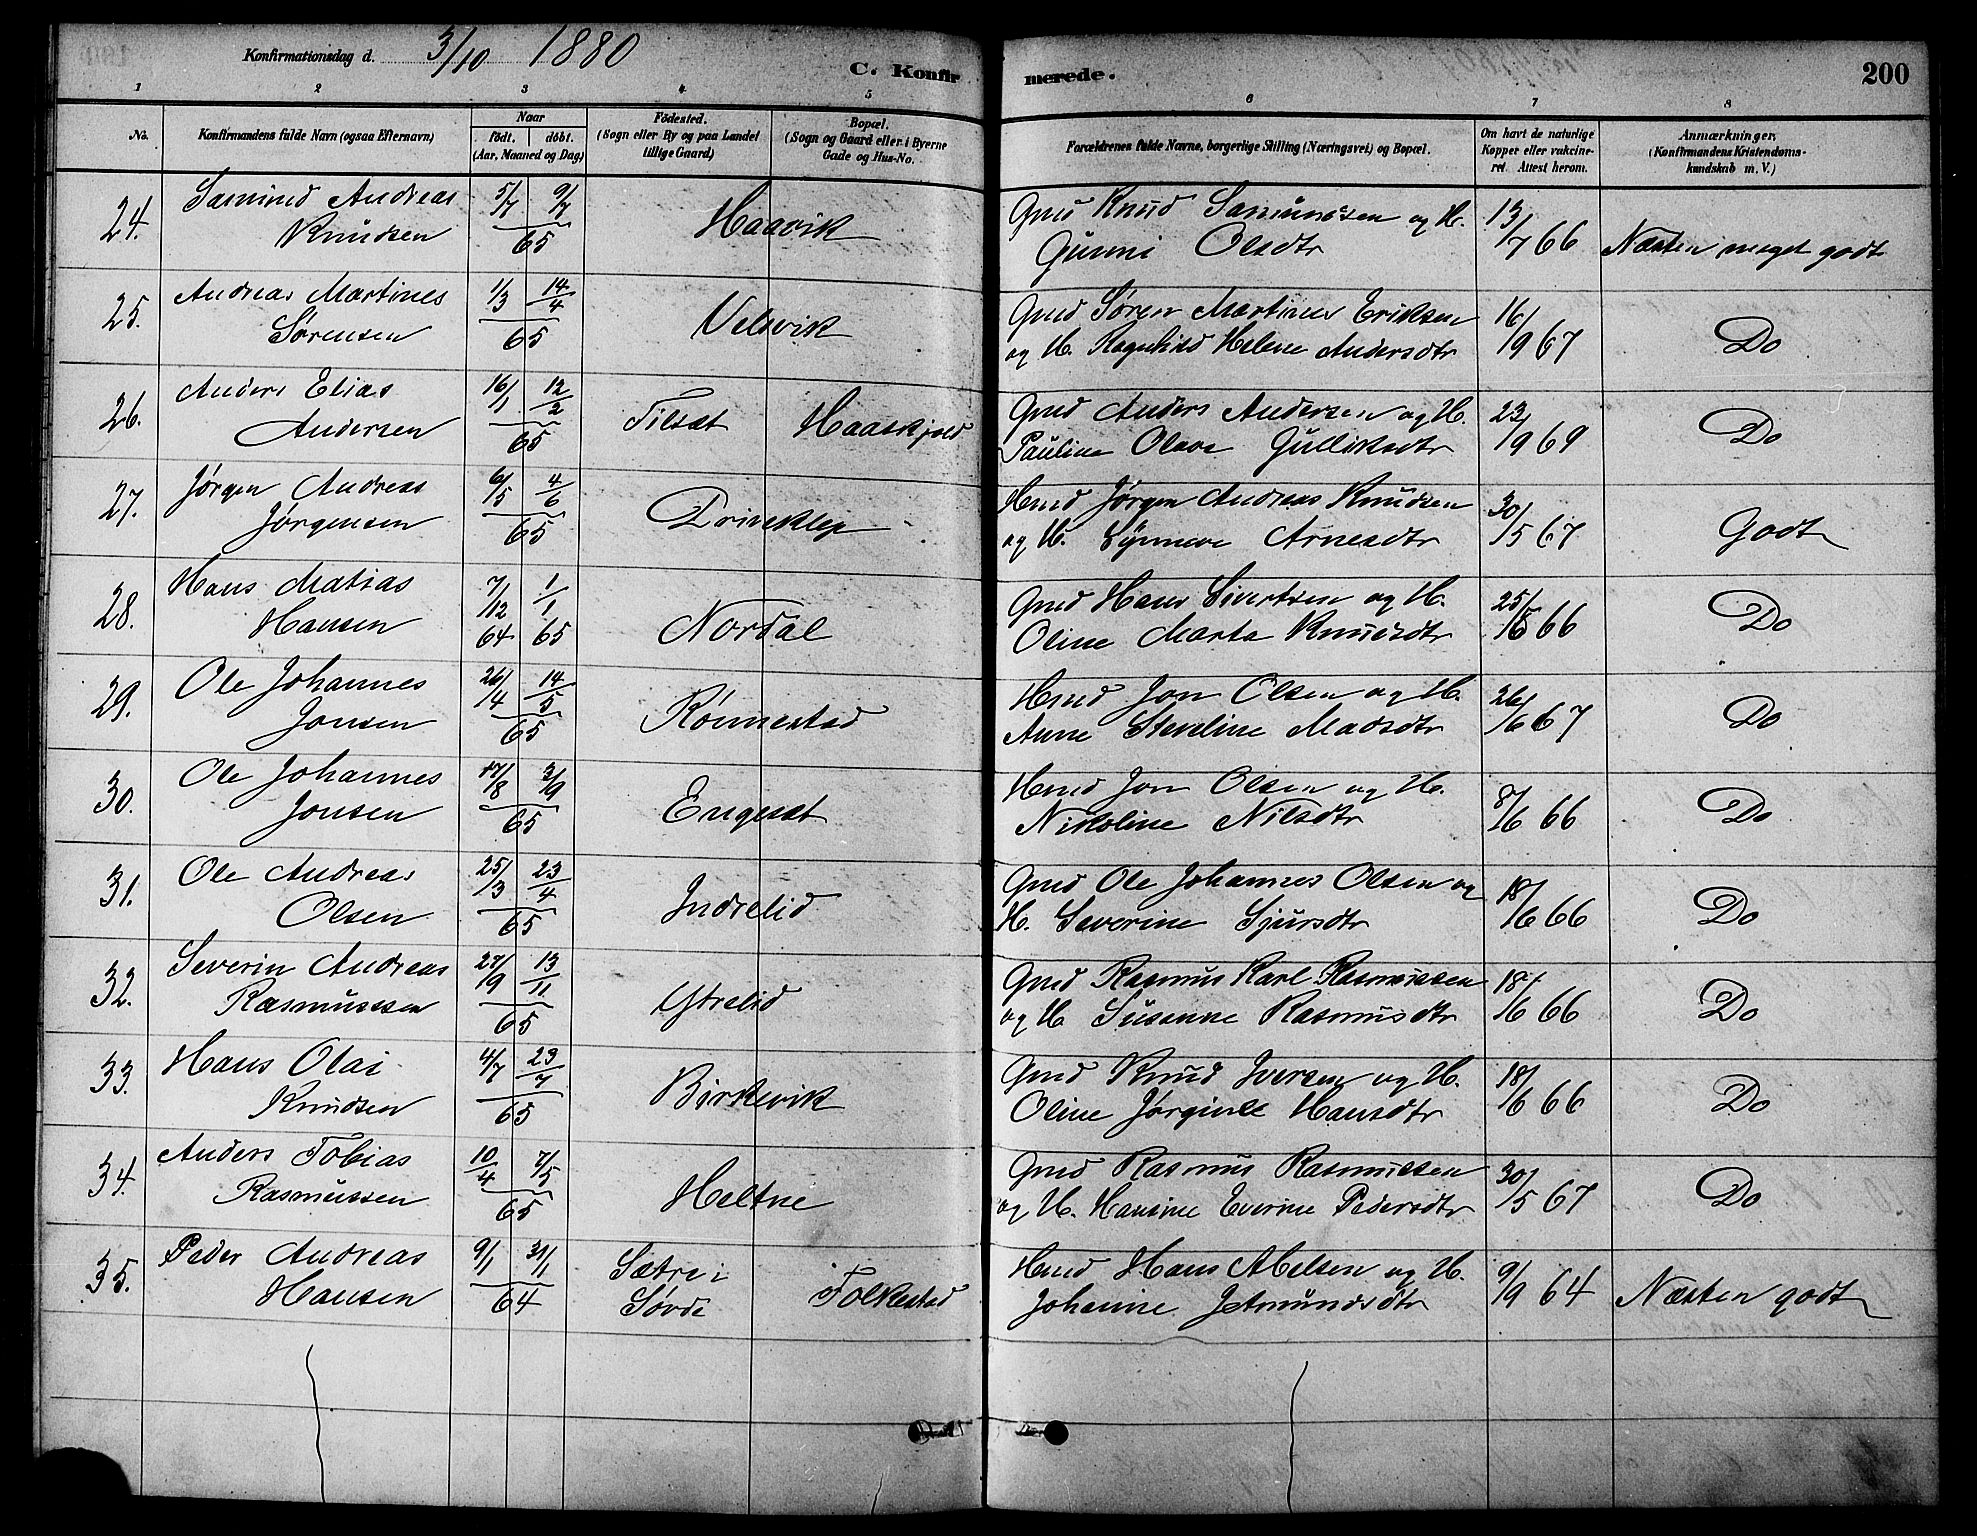 Konfirmationsdag d. 3/10 1880
C. Konfirmerede.
200
1 2 3 4 5 6 7 8
No.
Konfirmandens fulde Navn (ogsaa Efternavn)
Naar
födt. döbt.
(Aar, Maaned og Dag)
Födested.
(Sogn eller By og paa Landet
tillige Gaard)
Bopæl.
(Sogn og Gaard eller i Byerne
Gade og Hus-No.
Forældrenes fulde Navne, borgerlige Stilling (Næringsvei) og Bopæl.
Om havt de naturlige
Kopper eller vakcine-
ret. Attest herom.
Anmærkninger.
(Konfirmandens Kristendoms-
kundskab m. V.)
24. Samund Andreas 5/7 9/7 Haavik Gmd Knud Samundsen og H. 13
Knudsen 65 Gunni Olsdtr /7 66 Næsten meget godt
25. Andreas Martines 1/3 14/4 Velsvik Gmd Søren Martines Eriksen 16
Sørensen 65 og H. Ragnhild Helene Andersdtr /9 67 Do
26. Anders Elias 16/1 12/2 Tilsæt Haaskjold Gmd Anders Andersen og H. 23
Andersen 65 Pauline Olave Gulliksdtr /9 69 Do
27. Jørgen Andreas 6/5 4/6 Driveklep Hmd Jørgen Andreas Knudsen 30
Jørgensen 65 og H. Synneve Arnesdtr /5 67 Godt
28. Hans Matias 7/12 1/1 Nordal Gmd Hans Sivertsen og H. 25
Hansen 64 65 Oline Marta Knudsdtr 66 Do
29. Ole Johannes 26/4 14/5 Rønnestad Hmd Jon Olsen og H. 26
Jonsen 65 Anne Steneline Madsdtr /6 67 Do
30. Ole Johannes 17/8 3/9 Engeset Hmd Jon Olsen og H. 8
Jonsen 65 Nikoline Nilsdtr /6 66 Do
31. Ole Andreas 25/3 23/4 Indrelid Gmd Ole Johannes Olsen og 18
Olsen 65 H. Severine Sjursdtr /6 66 Do
32. Severin Andreas 27/9 13/11 Ytrelid Gmd Rasmus Karl Rasmussen 18
Rasmusssen 65 og H Susanne Rasmusdtr /6 66 Do
33. Hans Olai 4/7 23/7 Birkevik Gmd Knud Iversen og H. 18
Knudsen 65 Oline Jørgine Hansdtr /6 66 Do
34. Anders Tobias 10/4 7/5 Heltne Gmd Rasmus Rasmussen 30
Rasmussen 65 og H. Hansine Everine Pedersdtr /5 67 Do
35. Peder Andreas 9/1 31/1 Sætre i Folkestad Hmd Hans Abelsen og H. 9
Hansen 64 Søvde Johanne Jetmundsdtr /9 64 Næsten godt